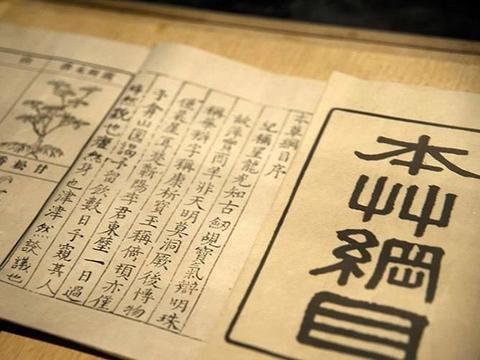 本艸綱目
本草綱目序
紀稱望龍光知古劍覘寶氣辯明珠
故萍實商羊非天明莫洞厥後博物
稱華辯字稱康析寶玉稱倚頓亦僅
僅晨星耳楚蘄陽李君東璧一日過
予弇山園謁予留飲數日予窺其人
睟然貌也癯然身也津津然談議也